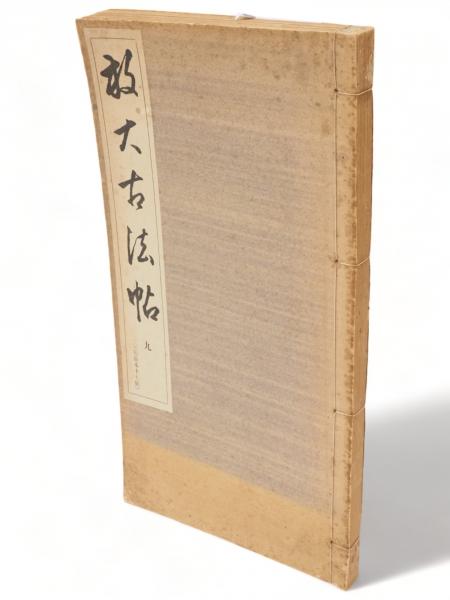 放大古法帖
九